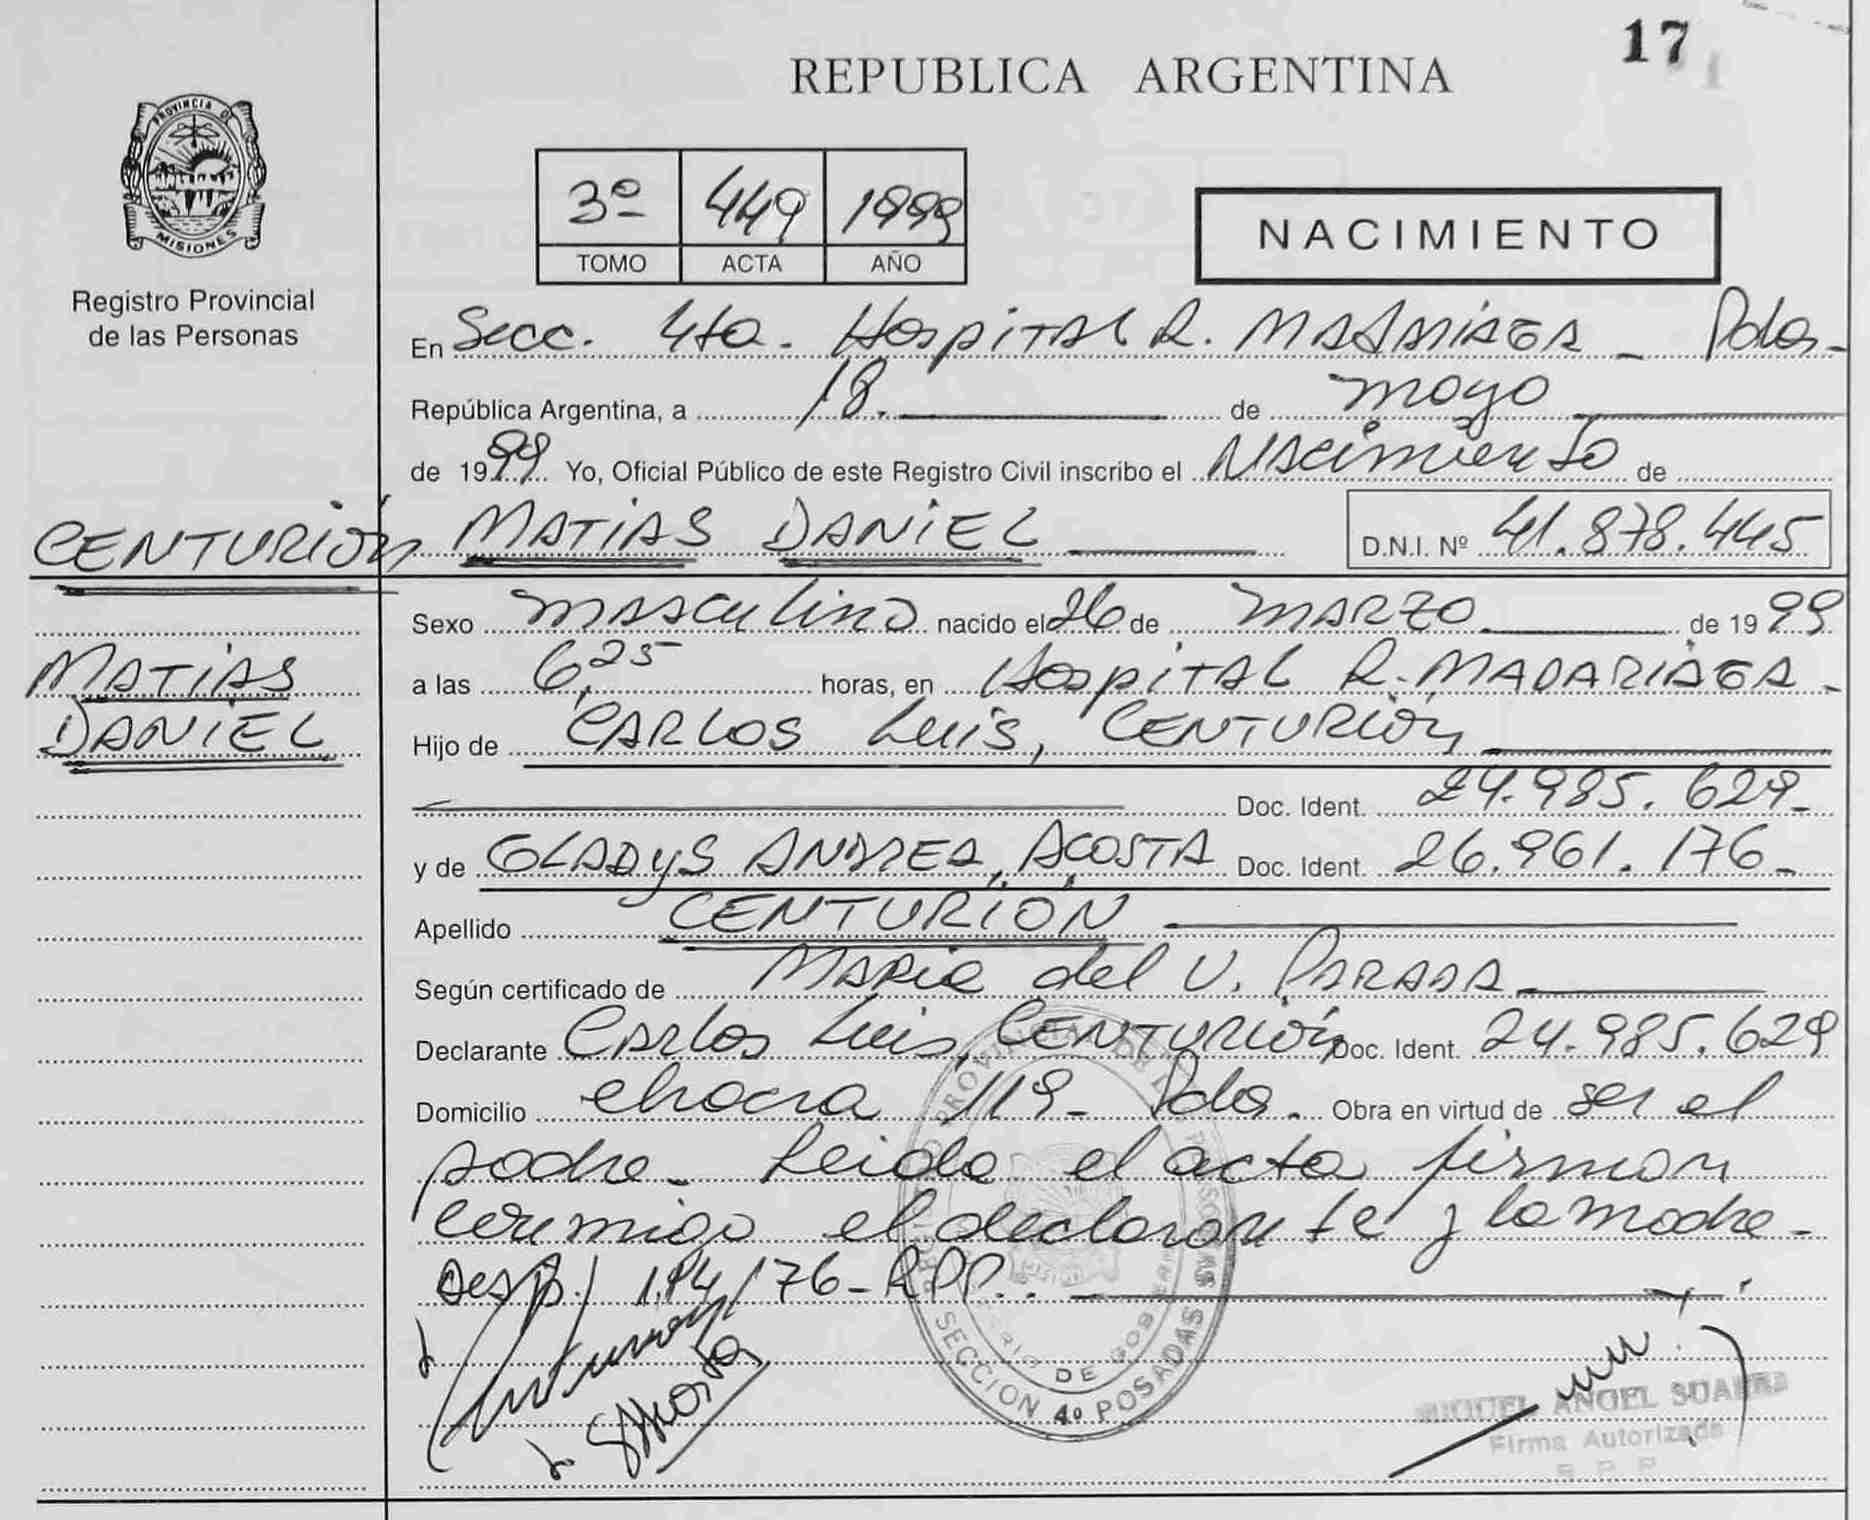 17
REPUBLICA ARGENTINA
PROVINCIA DE
MISIONES
Registro Provincial
de las Personas
3º 449 1999
TOMO ACTA AÑO
NACIMIENTO
En Secc. 4ta. Hospital R. MADARIAGA - Pdas-
República Argentina, a 18. de mayo
de 1999. Yo, Oficial Público de este Registro Civil inscribo el Nacimiento de
CENTURIÓN MATIAS DANIEL D.N.I. Nº 41.878.445
Sexo masculino nacido el 26 de MARZO de 1999
MATIAS
a las 6,25 horas, en Hospital R. MADARIAGA -
DANIEL
Hijo de CARLOS Luis, CENTURIÓN
Doc. Ident. 24.985.629-
y de GLADYS ANDREA, ACOSTA Doc. Ident. 26.961.176-
Apellido CENTURIÓN
Según certificado de Maria del V. PARADA
Declarante Carlos Luis, CENTURIÓN Doc. Ident. 24.985.629
Domicilio chacra 119- Pdas. Obra en virtud de ser el
padre- Leida el acta firman
conmigo el declarante y la madre-
Desp. 184/76-RPP.
SECCION 4º POSADAS
MIGUEL ANGEL SUAREZ
Firma Autorizada
R P P